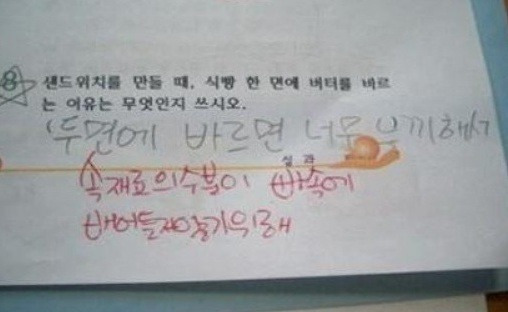 8 샌드위치를 만들 때, 식빵 한 면에 버터를 바르
는 이유는 무엇인지 쓰시오.
두면에 바르면 너무 느끼해서
실 과
속재료의수분이 빵속에
배어들지않기위해